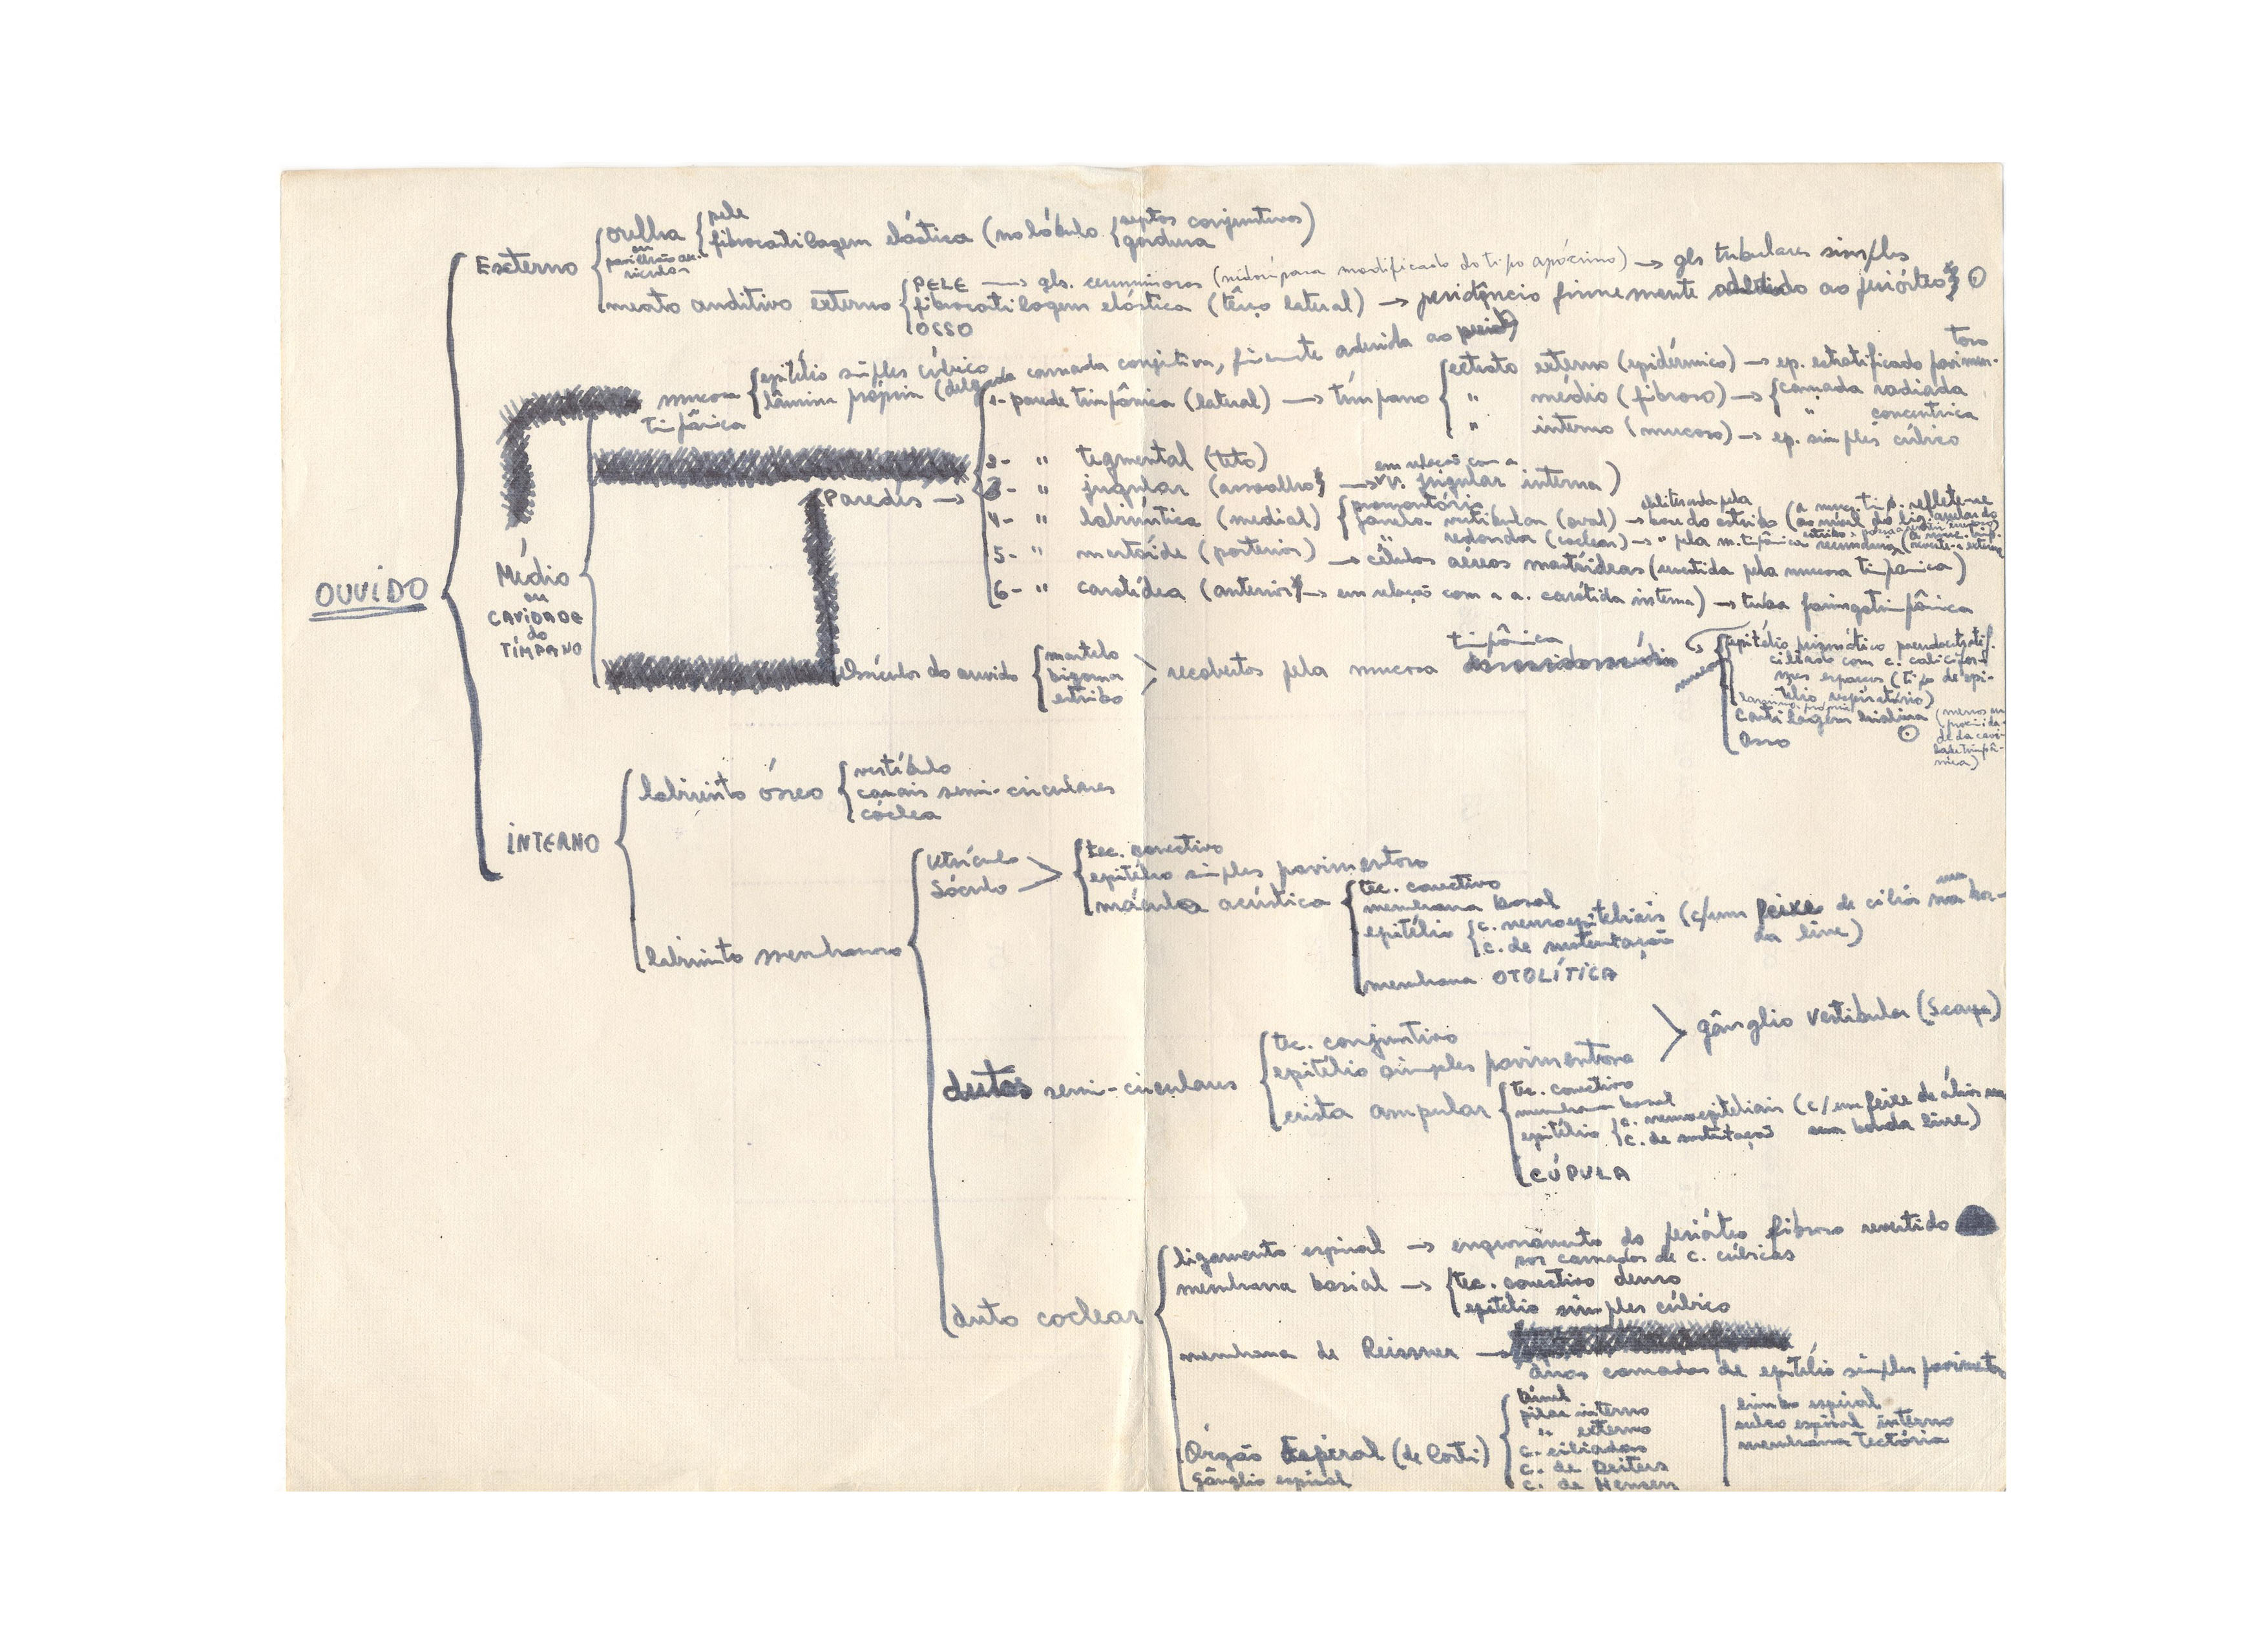 OUVIDO
Externo
orelha
ou
pavilhão au-
ricular
pele
fibrocartilagem elástica (no lóbulo
septos conjuntivos)
gordura
meato auditivo externo
PELE → gls. ceruminosas (sudorípara modificado do tipo apócrino) → gls tubulares simples
fibrocartilagem elástica (têrço lateral) → pericôndrio firmemente aderido ao periósteo
OSSO
Médio
ou
CAVIDADE
do
TÍMPANO
mucosa
timpânica
epitélio simples cúbico
lâmina própria (delgada camada conjuntiva, firmemente aderida ao
Paredes →
1- parede timpânica (lateral) → tímpano
extrato externo (epidérmico) → ep. estratificado pavimen-
toso
" médio (fibroso) → camada radiada
" concentrica
" interno (mucoso) → ep. simples cúbico
2- " tegmental (teto)
3- " jugular (assoalho) → em relação com a
v. jugular interna)
4- " labiríntica (medial)
promontório
janela vestibular (oval) → obliterada pela
base do estribo
" redonda (coclear) → " pela m. timpânica secundária
5- " mastóide (posterior) → células aéreas mastóideas (revestida pela mucosa timpânica)
6- " carotídea (anterior) → em relação com a a. carótida interna) → tuba faringotimpânica
epitélio prismático pseudoestratif.
ciliado com c. calicifor-
mes esparsas (tipo de epi-
télio respiratório)
lâmina própria
cartilagem hialina (menos na
proximida-
de da cavi-
dade timpâ-
nica)
osso
Ossículos do ouvido
martelo
bigorna
estribo
recobertos pela mucosa timpânica
INTERNO
labirinto ósseo
vestíbulo
canais semi-circulares
cóclea
labirinto membranoso
Utrículo
Sáculo
tec. conectivo
epitélio simples pavimentoso
mácula acústica
tec. conectivo
membrana basal
epitélio
c. neuroepiteliais (c/um feixe de cílios na bor-
da livre)
c. de sustentação
membrana OTOLÍTICA
dutos semi-circulares
tec. conjuntivo
epitélio simples pavimentoso
crista ampular
tec. conectivo
membrana basal
epitélio
c. neuroepiteliais (c/um feixe de cílios
c. de sustentação sua borda livre)
CÚPULA
gânglio Vestibular (Scarpa)
duto coclear
ligamento espiral → engrossamento do periósteo fibroso revestido
por camadas de c. cúbicas
membrana basial →
tec. conectivo denso
epitélio simples cúbico
membrana de Reissner →
duas camadas de epitélio simples pavimentoso
Órgão Espiral (de Corti)
túnel
pilar interno
" externo
c. ciliadas
c. de Deiters
c. de Hensen
limbo espiral
sulco espiral interno
membrana tectória
Gânglio espiral